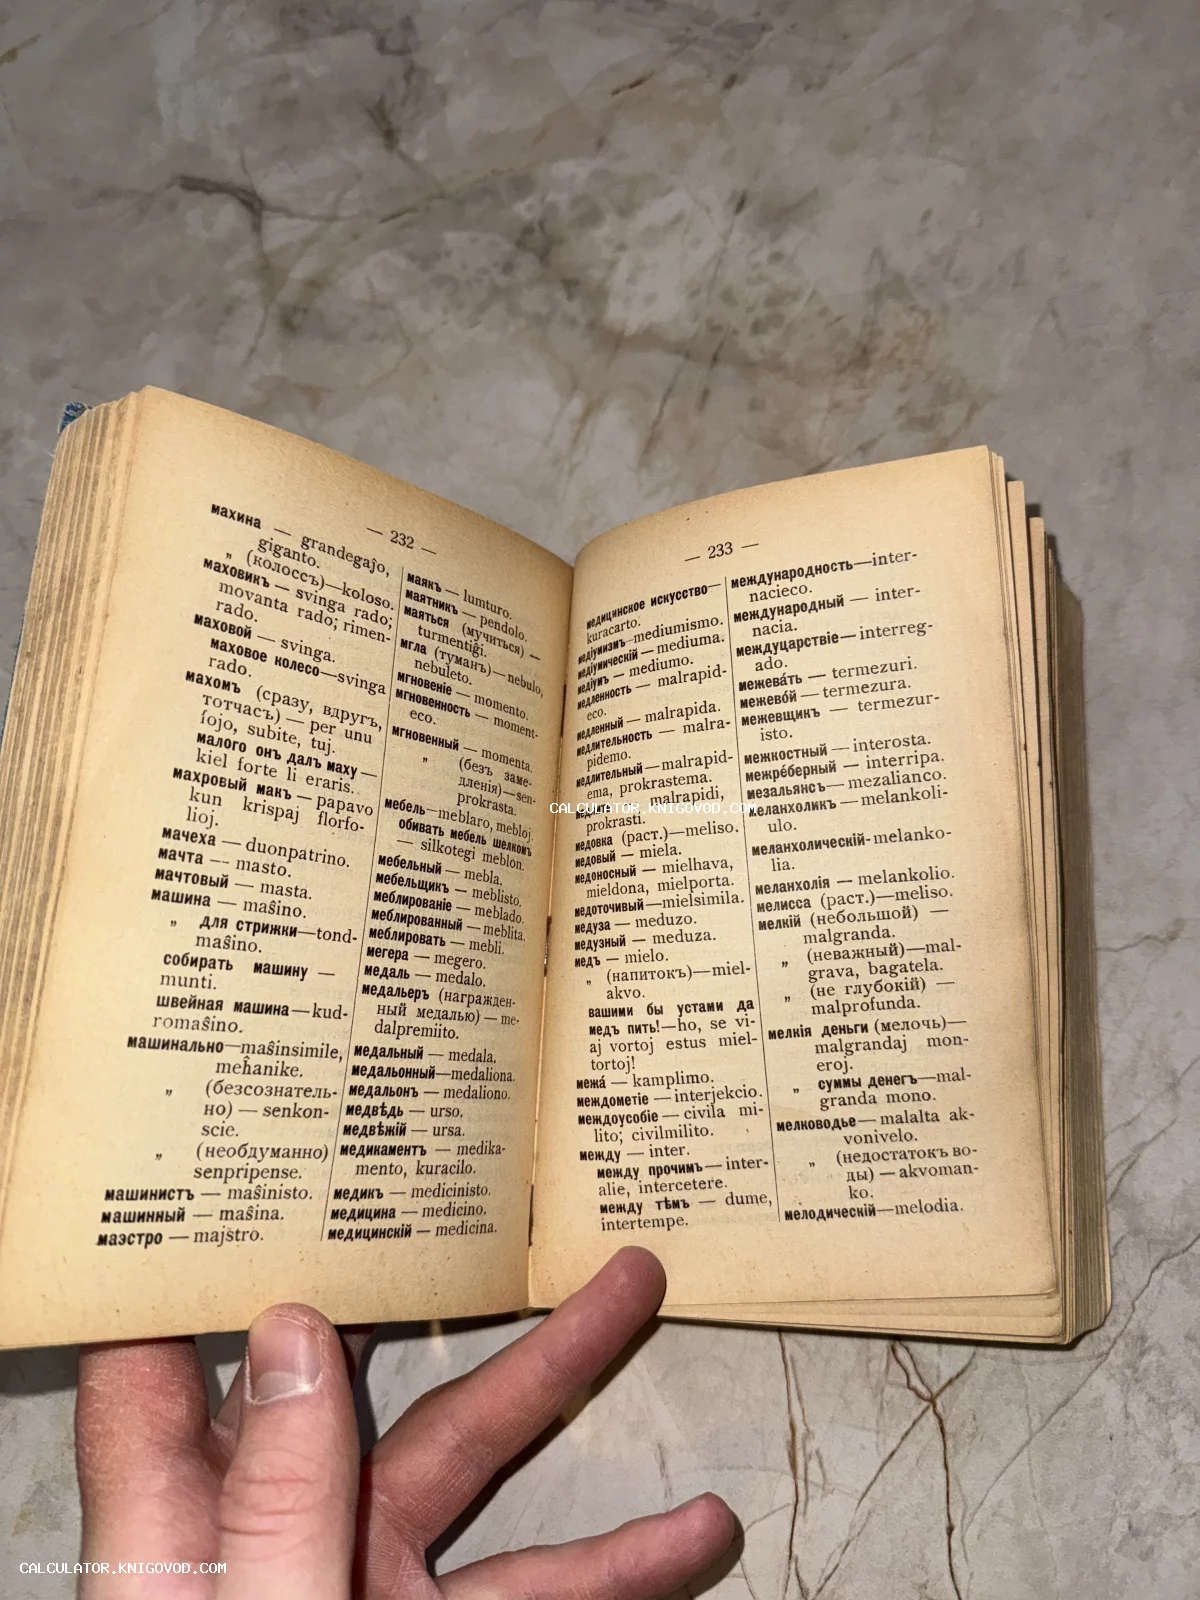 — 232 —
махина — grandegaĵo,
giganto.
„ (колоссъ)—koloso.
маховикъ — svinga rado;
movanta rado; rimen-
rado.
маховой — svinga.
маховое колесо—svinga
rado.
махомъ (сразу, вдругъ,
тотчасъ) — per unu
fojo, subite, tuj.
малого онъ далъ маху —
kiel forte li eraris.
махровый макъ — papavo
kun krispaj florfo-
lioj.
мачеха — duonpatrino.
мачта — masto.
мачтовый — masta.
машина — maŝino.
„ для стрижки—tond-
maŝino.
собирать машину —
munti.
швейная машина—kud-
romaŝino.
машинально—maŝinsimile,
meĥanike.
„ (безсознатель-
но) — senkon-
scie.
„ (необдуманно)
senpripense.
машинистъ — maŝinisto.
машинный — maŝina.
маэстро — majstro.
маякъ — lumturo.
маятникъ — pendolo.
маяться (мучиться) —
turmentiĝi.
мгла (туманъ)—nebulo,
nebuleto.
мгновеніе — momento.
мгновенность — moment-
eco.
мгновенный — momenta.
„ (безъ заме-
дленія)—sen-
prokrasta.
мебель—meblaro, mebloj.
обивать мебель шелкомъ
— silkotegi meblon.
мебельный — mebla.
мебельщикъ — meblisto.
меблированіе — meblado.
меблированный — meblita.
меблировать — mebli.
мегера — megero.
медаль — medalo.
медальеръ (награжден-
ный медалью) — me-
dalpremiito.
медальный — medala.
медальонный—medaliona.
медальонъ — medaliono.
медвѣдь — urso.
медвѣжій — ursa.
медикаментъ — medika-
mento, kuracilo.
медикъ — medicinisto.
медицина — medicino.
медицинскій — medicina.
— 233 —
медицинское искусство—
kuracarto.
медіумизмъ—mediumismo.
медіумическій — mediuma.
медіумъ — mediumo.
медленность — malrapid-
eco.
медленный — malrapida.
медлительность — malra-
pidemo.
медлительный — malrapid-
ema, prokrastema.
malrapidi,
prokrasti.
медовка (раст.)—meliso.
медовый — miela.
медоносный — mielhava,
mieldona, mielporta.
медоточивый—mielsimila.
медуза — meduzo.
медузный — meduza.
медъ — mielo.
„ (напитокъ)—miel-
akvo.
вашими бы устами да
медъ пить!—ho, se vi-
aj vortoj estus miel-
tortoj!
межа́ — kamplimo.
междометіе — interjekcio.
междоусобіе — civila mi-
lito; civilmilito.
между — inter.
между прочимъ — inter-
alie, intercetere.
между тѣмъ — dume,
intertempe.
международность—inter-
nacieco.
международный — inter-
nacia.
междуцарствіе— interreg-
ado.
межева́ть — termezuri.
межево́й — termezura.
межевщикъ — termezur-
isto.
межкостный — interosta.
межре́берный — interripa.
мезальянсъ— mezalianco.
меланхоликъ — melankoli-
ulo.
меланхолическій- melanko-
lia.
меланхолія — melankolio.
мелисса (раст.)—meliso.
мелкій (небольшой) —
malgranda.
„ (неважный)—mal-
grava, bagatela.
„ (не глубокій) —
malprofunda.
мелкія деньги (мелочь)—
malgrandaj mon-
eroj.
„ суммы денегъ—mal-
granda mono.
мелководье— malalta ak-
vonivelo.
„ (недостатокъ во-
ды) — akvoman-
ko.
мелодическій—melodia.
CALCULATOR.KNIGOVOD.COM
CALCULATOR.KNIGOVOD.COM